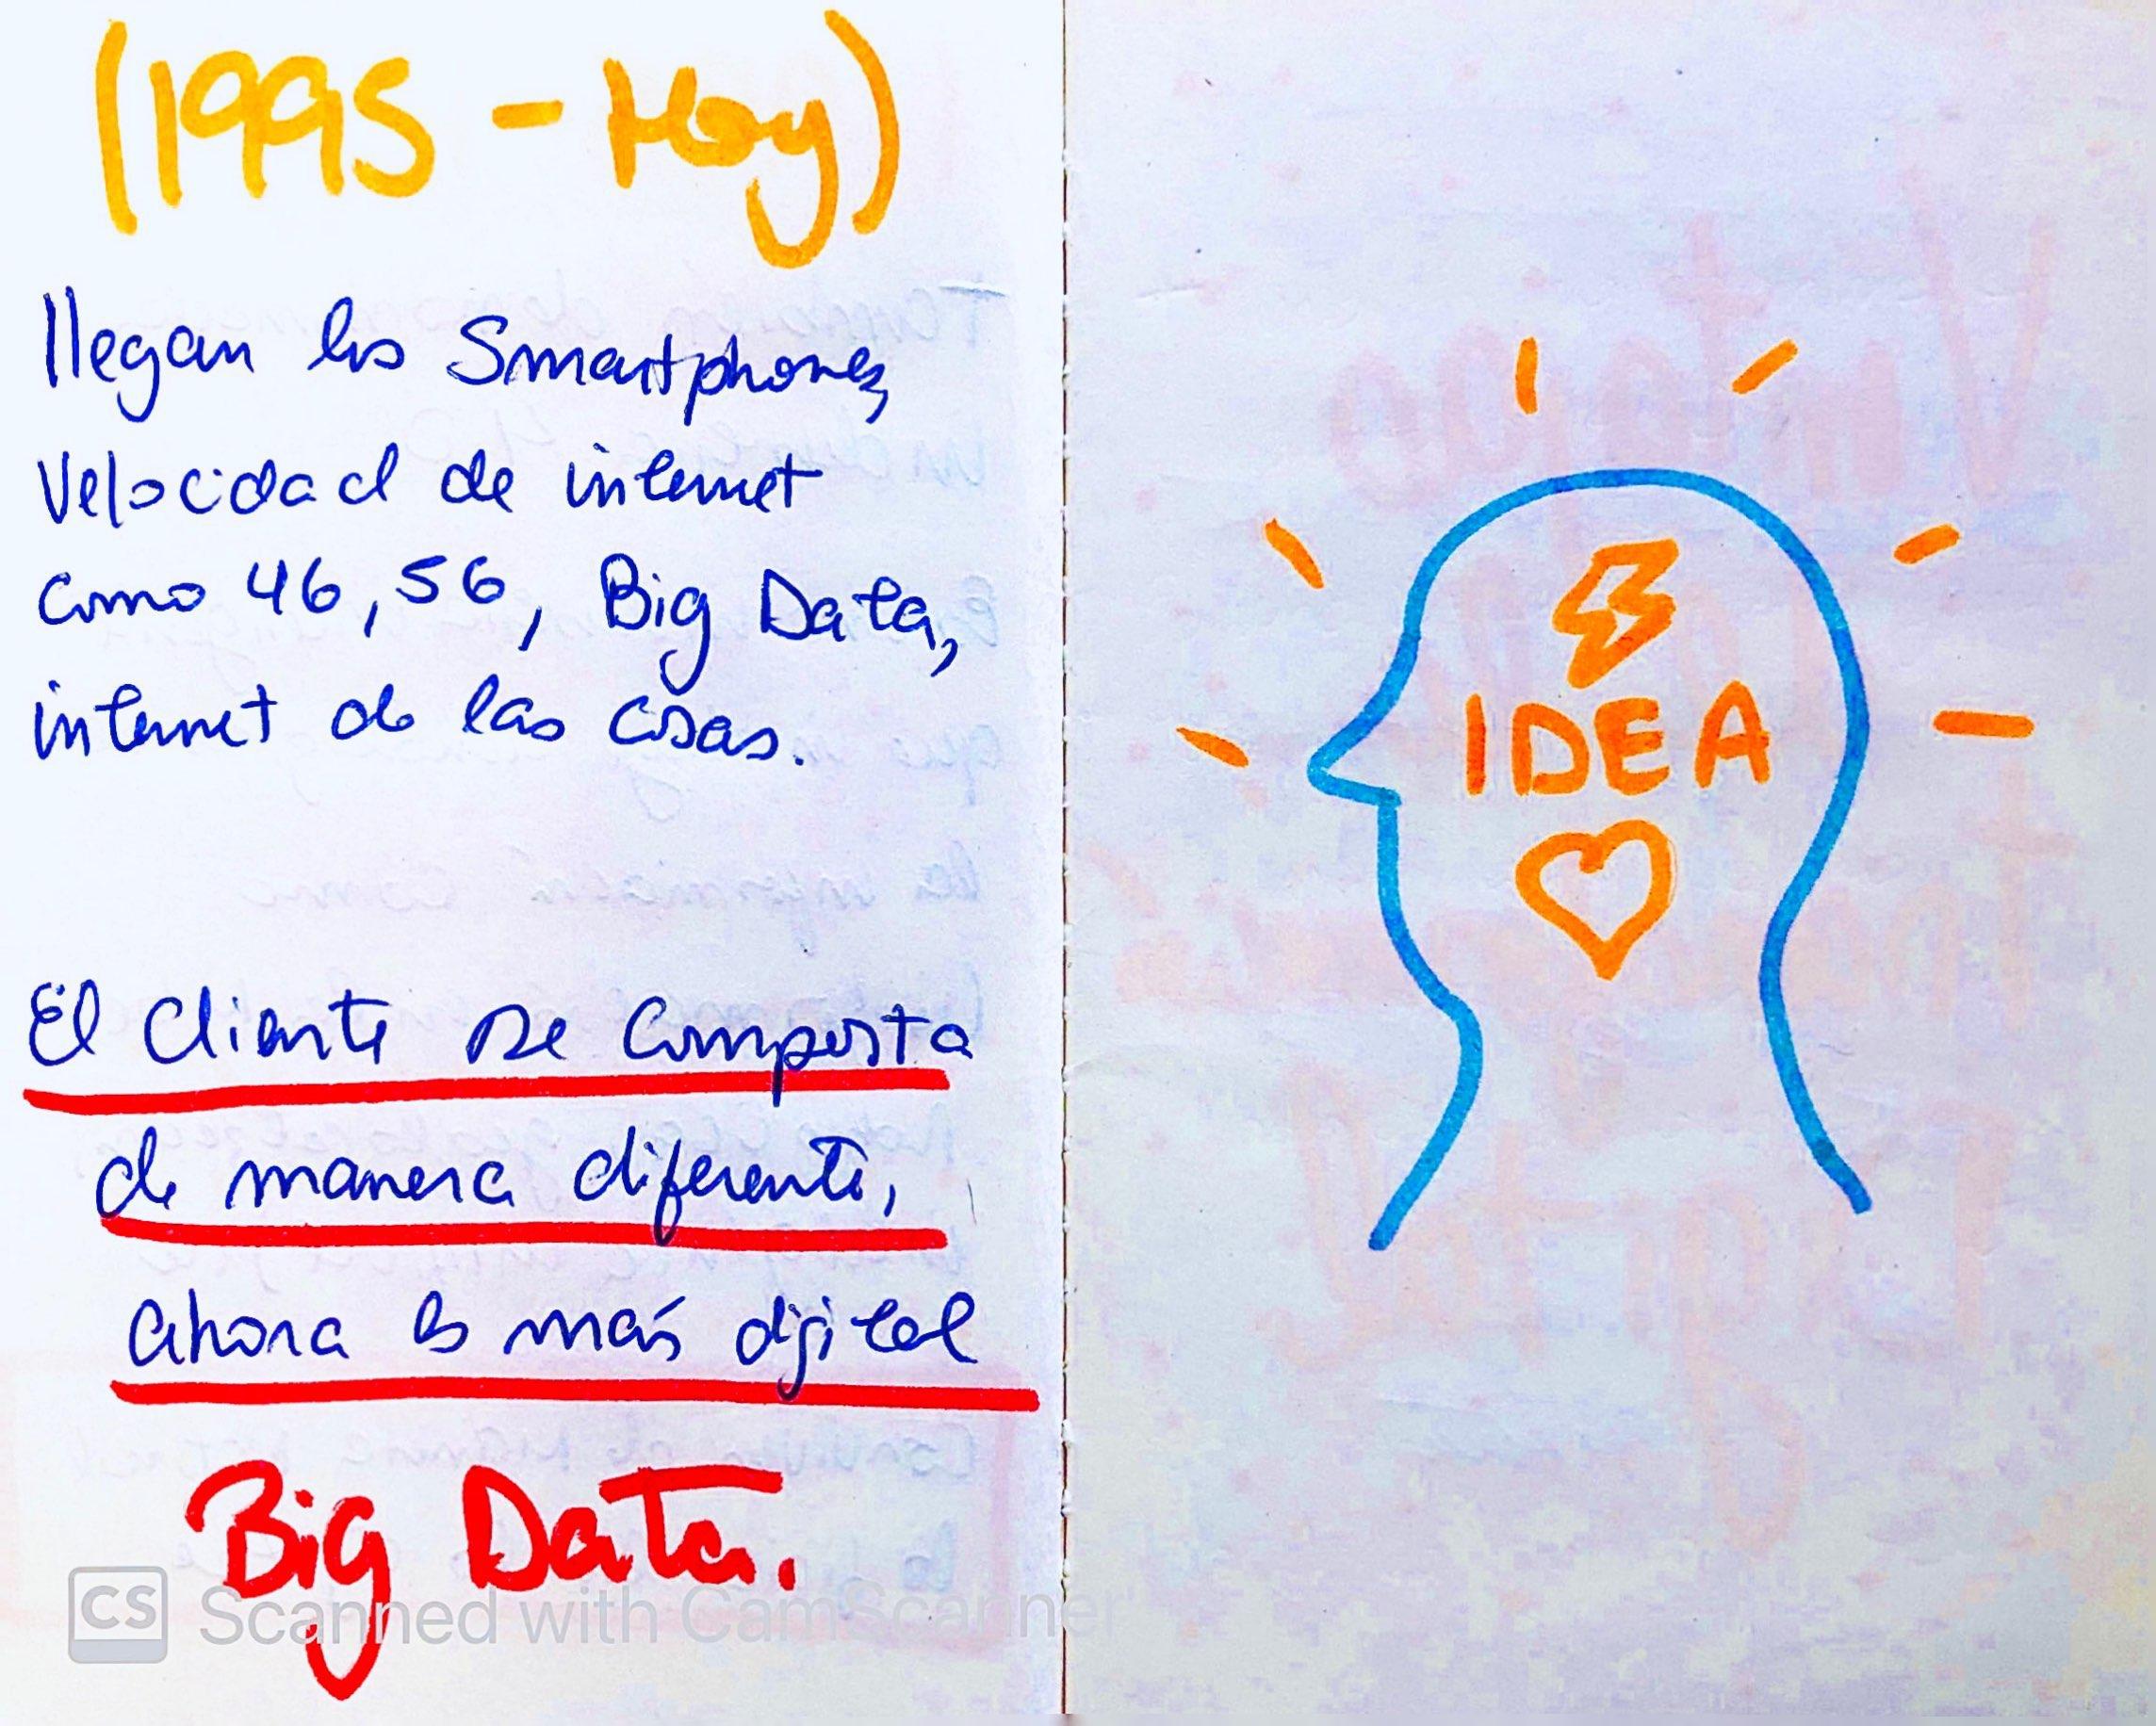 (1995 - Hoy)
llegan los Smartphones,
Velocidad de internet
como 4G, 5G, Big Data,
internet de las cosas.
El Cliente se Comporta
de manera diferente,
ahora es más digital
Big Data.
CS Scanned with CamScanner
IDEA